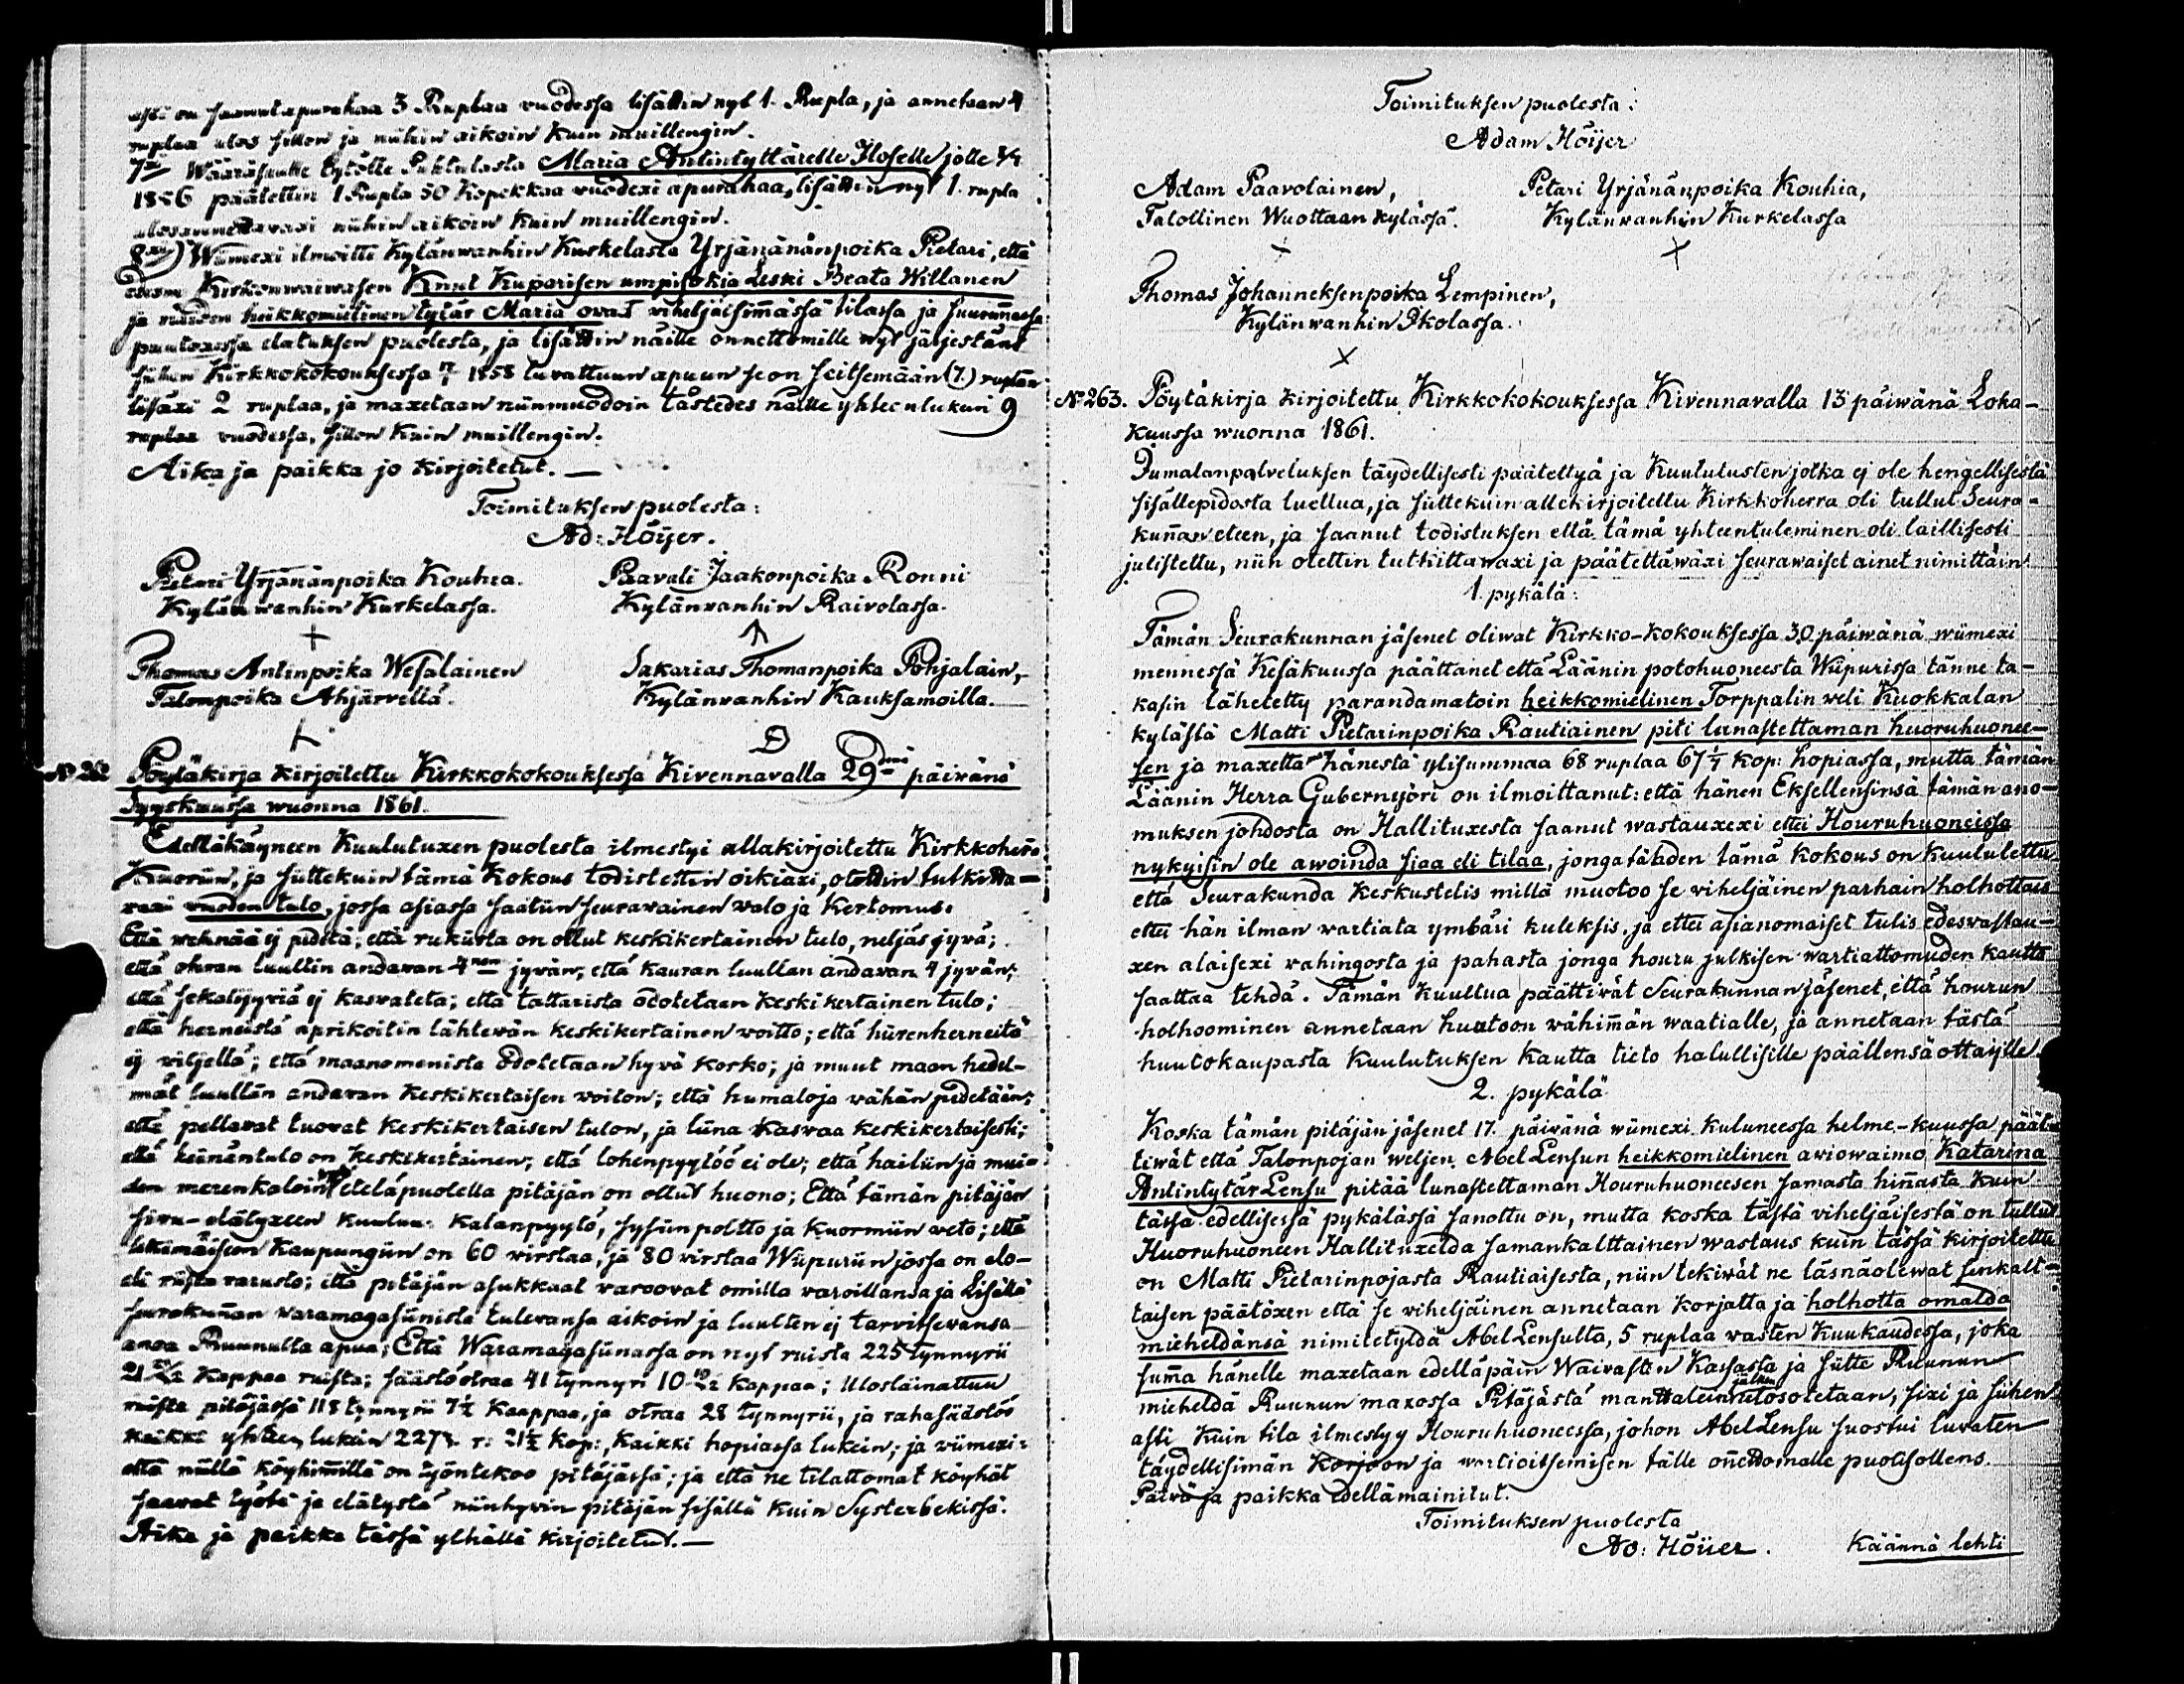 asti on saanut apurahaa 3 Ruplaa vuodessa lisättin nyt 1. Rupla, ja annetaan 4
ruplaa ulos sillon ja niihin aikoin kuin muillengin.
7xi Wääräsuulle tytölle Puhtulasta Maria Antintyttärelle Iloselle jolle
1856 päätettin 1 Rupla 50 Kopekkaa vuodexi apurahaa, lisättin nyt 1. rupla
ulosannettavaxi niihin aikoin kuin muillengin.
8xi) Wiimexi ilmoitti Kylänwanhin Kurkelasta Yrjänänpoika Pietari, että
Kirkonwaiwasen Knut Kuparisen umpisokia Leski Beata Willanen
ja näiden heikkomielinen tytär Maria ovat viheljäisimmässä tilassa ja suurimmassa
puutoxessa elatuksen puolesta, ja lisättin näille onnettomille nyt järjestänsä
Kirkkokokouksessa 1858 luvattuun apuun se on seitsemään (7.) ruplaan
lisäxi 2 ruplaa, ja maxetaan niinmuodoin tästedes näille yhteenlukein 9
ruplaa vuodessa, sillon kuin muillengin.
Aika ja paikka jo kirjoitetut. —
Toimituksen puolesta:
Ad: Höijer.
Petari Yrjänänpoika Kouhia. Paavali Jaakonpoika Ronni
Kylänwanhin Kurkelassa. Kylänvanhin Raivolassa.
Thomas Antinpoika Wesalainen Sakarias Thomanpoika Pohjalain,
Talonpoika Ahjärvellä. Kylänvanhin Kauksamoilla.
No 262 Pöytäkirja kirjoitettu Kirkkokokouksessa Kivennavalla 29nä päivänä
Syyskuussa wuonna 1861.
Edelläkäyneen Kuulutuxen puolesta ilmestyi allakirjoitettu Kirkkoherra
Kuoriin, ja siittekuin tämä Kokous todistettin oikiaxi, otettin tutkitta-
vaxi vuoden tulo, jossa asiassa saatiin seuravainen valo ja Kertomus:
Että wehnää ej pidetä; että rukiista on ollut keskikertainen tulo, neljäs jyvä;
että ohran luullin andavan 4nen jyvän; että kauran luullan andavan 4 jyvän;
että sekalijyviä ej kasvateta; että tattarista odotetaan keskikertainen tulo;
että herneistä aprikoitin lähtevän keskikertainen voitto; että hiirenherneitä
ej viljellä; että maanomenista odotetaan hyvä korko; ja muut maan hedel-
mät luullan andavan keskikertaisen voiton; että humaloja vähän pidetään;
että pellavat tuovat keskikertaisen tulon, ja liina kasvaa keskikertaisesti;
että heinäntulo on keskikertainen; että lohenpyytöö ei ole; että hailiin ja mui-
den merenkaloin eteläpuolella pitäjän on ollut huono; Että tämän pitäjän
sivu-elätyxeen kuuluu: kalanpyytö, sysiin poltto ja kuormiin veto; että
lähimäiseen kaupungiin on 60 virstaa, ja 80 virstaa Wiipuriin jossa on elo-
eli riista varasto; että pitäjän asukkaat varoovat omilla varoillansa ja Lisäksi
seurakunnan waramagasiinista tulevansa aikoin ja luulten ej tarvitsevansa
anoa Ruunulta apua; Että Waramagasiinassa on nyt ruista 225 tynnyrii
21 kappaa ruista; säästöohraa 41 tynnyri 10 kappaa; Uloslainattuu
ruista pitäjässä 118 tynnyrii 7½ kaappaa, ja otraa 28 tynnyrii, ja rahasäästöö
kaikki yhteen lukein 227 r: 21½ kop:, kaikki hopiassa lukein; ja viimexi:
että niillä köyhimmillä on työntekoo pitäjässä; ja että ne tilattomat köyhät
saavat työtä ja elätystä niinhyvin pitäjän sisällä kuin Systerbekissä.
Aika ja paikka tässä ylhällä kirjoitetut. —
Toimituksen puolesta:
Adam Höijer
Adam Paavolainen, Petari Yrjänänpoika Kouhia,
Talollinen Wuottaan kylässä. Kylänvanhin Kurkelassa
Thomas Johanneksenpoika Lempinen,
Kylänwanhin Ikolassa.
No 263. Pöytäkirja kirjoitettu Kirkkokokouksessa Kivennavalla 13 päiwänä Loka-
kuussa wuonna 1861.
Jumalanpalveluksen täydellisesti päätettyä ja Kuulutusten jotka ej ole hengellisestä
sisällepidosta luettua, ja siittekuin allekirjoitettu Kirkkoherra oli tullut Seura-
kunnan eteen, ja saanut todistuksen että tämä yhteentuleminen oli laillisesti
julistettu, niin otettin tutkittawaxi ja päätettäwäxi seurawaiset ainet nimittäin:
1. pykälä:
Tämän Seurakunnan jäsenet oliwat Kirkko-kokouksessa 30. päiwänä wiimexi
mennessä Kesäkuussa päättänet että Läänin potohuoneesta Wiipurissa tänne ta-
kasin lähetetty parandamatoin heikkomielinen Torppalin weli Kuokkalan
kylästä Matti Pietarinpoika Rautiainen piti lunastettaman huoruhuonee-
sen ja maxetta hänestä ylisummaa 68 ruplaa 67 1/7 kop: hopiassa, mutta tämän
Läänin Herra Gubernyöri on ilmoittanut: että hänen Eksellensinsä tämän ano-
muksen johdosta on Hallituxesta saanut wastauxexi ettei Houruhuoneissa
nykyisin ole awoinda siaa eli tilaa, jonga tähden tämä kokous on kuulutettu
että Seurakunda keskustelis millä muotoo se viheljäinen parhain holhottais
ettei hän ilman vartiata ymbäri kuleksis, ja ettei asianomaiset tulis edesvastau-
xen alaisexi vahingosta ja pahasta jonga houru julkisen vartiattomuden kautta
saattaa tehdä. Tämän kuultua päättivät Seurakunnan jäsenet, että hourun
holhoominen annetaan huutoon vähimmän waatialle, ja annetaan tästä
huutokaupasta kuulutuksen kautta tieto halullisille päällensä ottajille.
2. pykälä
Koska tämän pitäjän jäsenet 17. päivänä wiimexi kuluneessa helme-kuussa päät-
tiwät että Talonpojan weljen Abel Lensun heikkomielinen awiowaimo Katarina
Antintytär Lensu pitää lunastettaman Houruhuoneesen samasta hinnasta kuin
tässä edellisessä pykälässä sanottu on, mutta koska tästä viheljäisestä on tullut
Huoruhuoneen Hallituxelda samankalttainen wastaus kuin tässä kirjoitettu
on Matti Pietarinpojasta Rautiaisesta, niin tekiwät ne läsnäolewat senkalt-
taisen päätöxen että se viheljäinen annetaan korjatta ja holhotta omalda
mieheldänsä nimitetyldä Abel Lensulta, 5 ruplaa vasten Kuukaudessa, joka
summa hänelle maxetaan edelläpäin Waivasten Kassasta ja siitte Ruunun
mieheldä Ruunun maxossa Pitäjästä manttalein jälken ulosotetaan, sixi ja siihen
asti kuin tila ilmestyy Houruhuoneessa, johon Abel Lensu suostui luvaten
täydellisimän korjoon ja vartioitsemisen tälle onnettomalle puolisollens.
Päivä ja paikka edellämainitut.
Toimituksen puolesta
Ad: Höijer. Käännä lehti